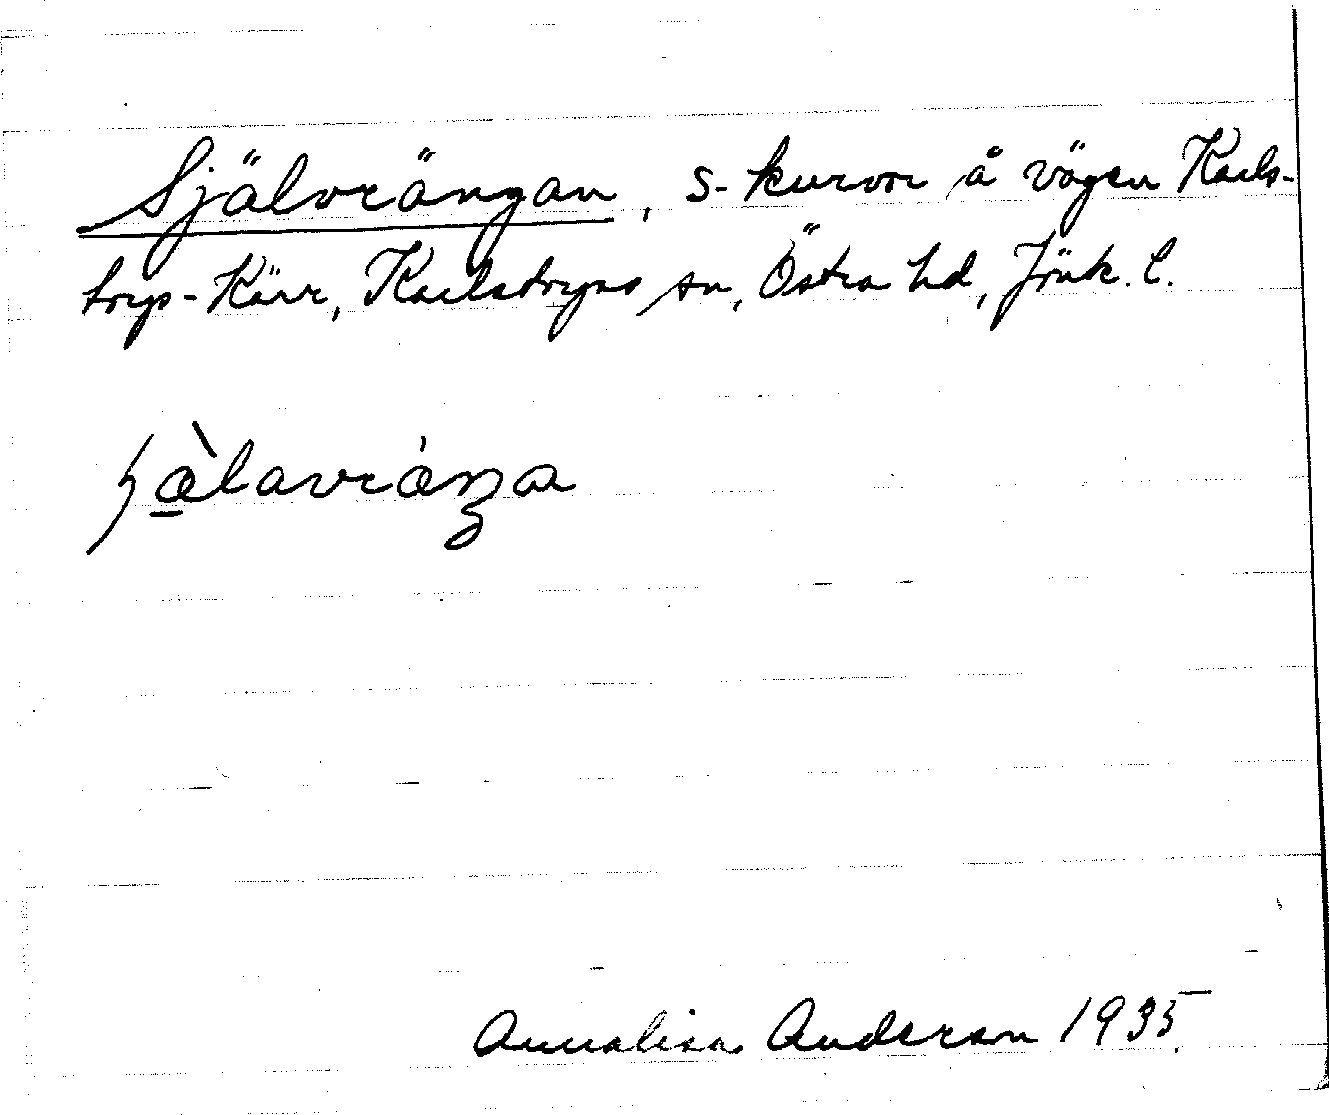 Självrängan, s-kurvor å vägen Karls-
torp-Kärr, Karlstorps sn, Östra hd, Jönk. l.
Annalisa Anderson 1935